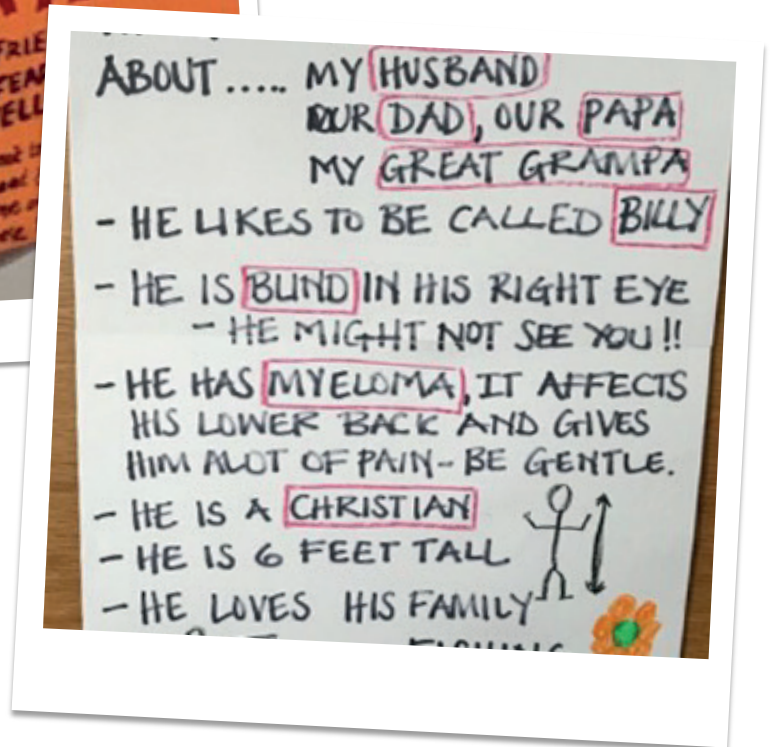 ABOUT ..... MY HUSBAND
OUR DAD, OUR PAPA
MY GREAT GRAMPA
- HE LIKES TO BE CALLED BILLY
- HE IS BLIND IN HIS RIGHT EYE
- HE MIGHT NOT SEE YOU!!
- HE HAS MYELOMA, IT AFFECTS
HIS LOWER BACK AND GIVES
HIM ALOT OF PAIN - BE GENTLE.
- HE IS A CHRISTIAN
- HE IS 6 FEET TALL
- HE LOVES HIS FAMILY
FISHING